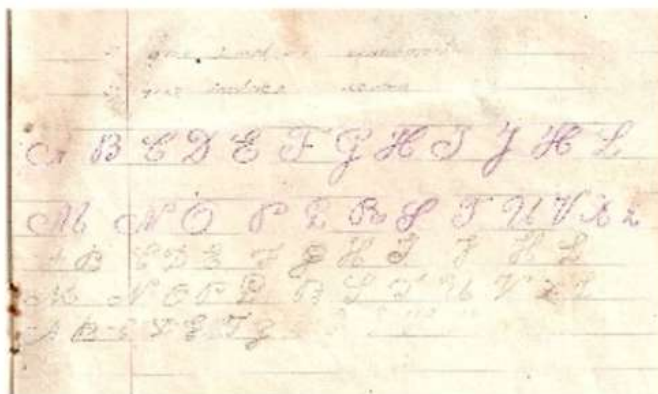 que indica
A B C D E F G H I J K L
M N O P Q R S T U V X Z
A B C D E F G H I J K L
M N O P Q R S T U V X Z
A B C D E F G